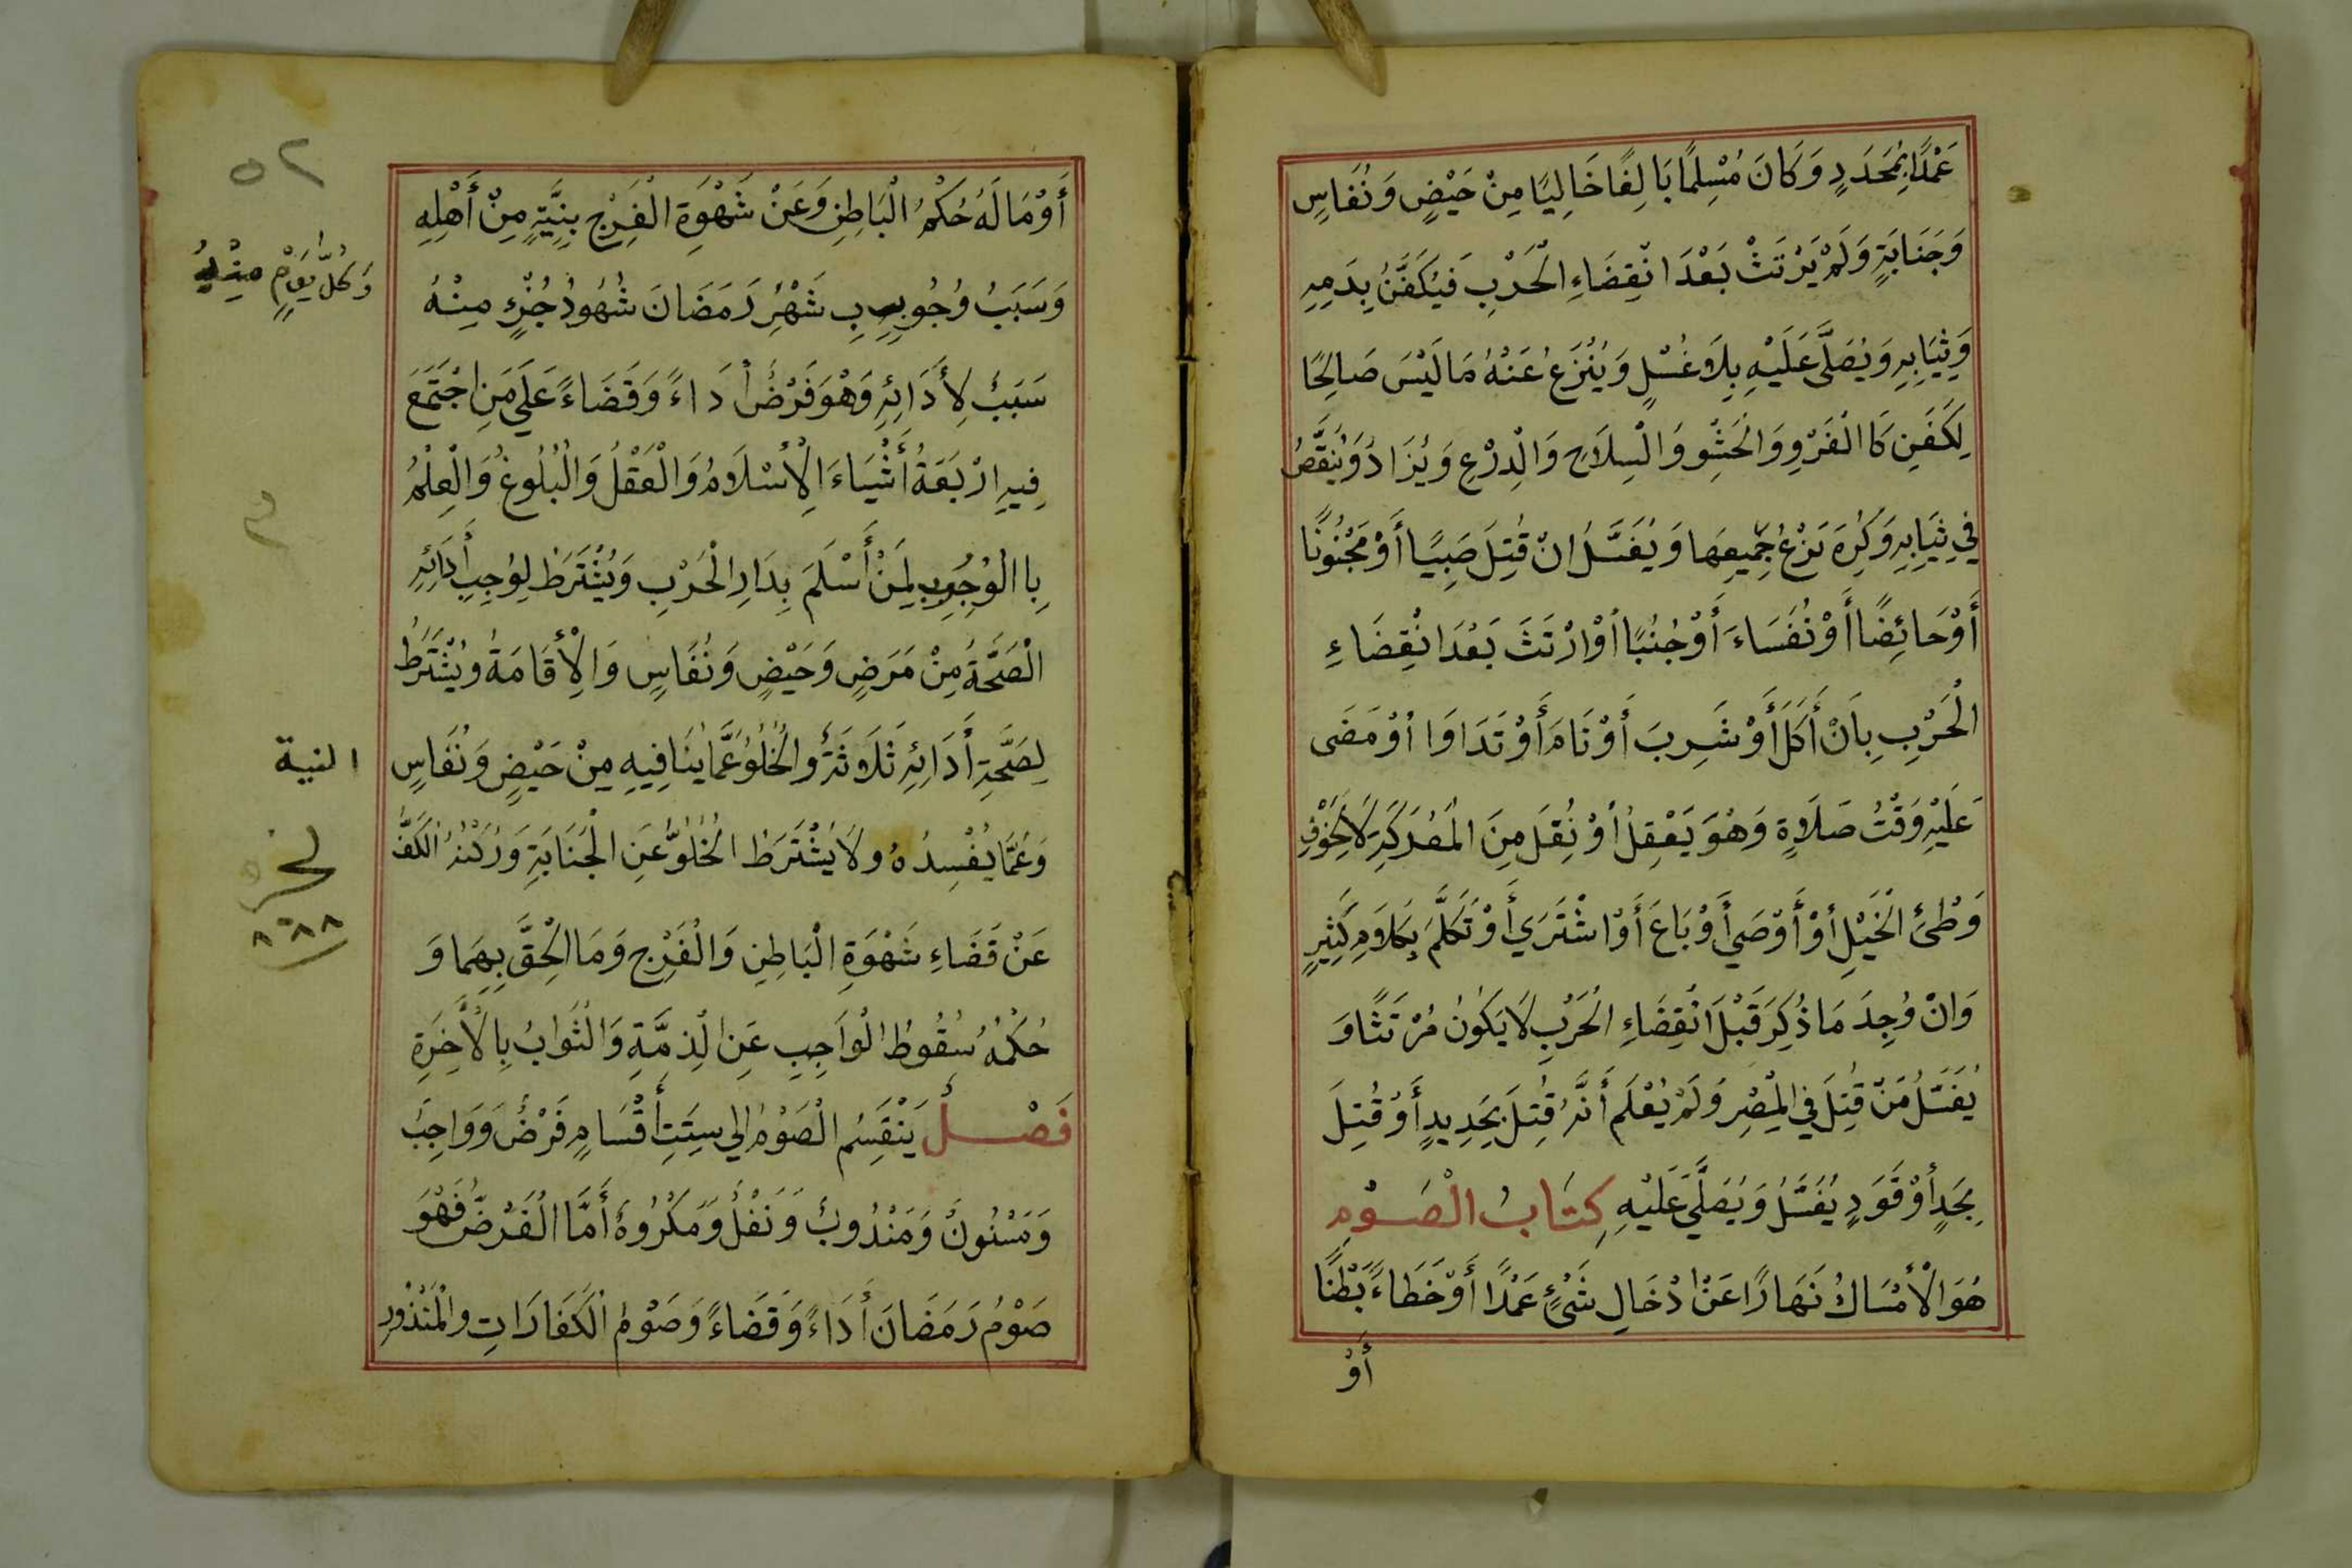 عَمْدًا بِمُحَدَدٍ وَكَانَ مُسْلِمًا بَالِغًا خَالِيًا مِنْ حَيْضٍ وَنُفَاسٍ
وَجَنَابَةٍ وَلَمْ يَرْتَثْ بَعْدَ انْقِضَاءِ الْحَرْبِ فَيُكَفَّنُ بِدَمِهِ
وَثِيَابِهِ وَيُصَلَّى عَلَيْهِ بِلَا غُسْلٍ وَيُنْزَعُ عَنْهُ مَا لَيْسَ صَالِحًا
لِكَفَنِ كَا الْفَرْوِ وَالْحَشْوِ وَالْسِلَاحِ وَالْدِرْعِ وَيُزَادُ وَيُنَقَّصُ
فِي ثِيَابِهِ وَكُرِهَ نَزْعُ جَمِيعِهَا وَيُغَسَّلُ انْ قُتِلَ صَبِيًا أَوْ مَجْنُونًا
أَوْ حَائِضًا أَوْ نُفَسَاءَ أَوْ جُنُبًا اوْ ارْتَثَ بَعْدَ انْقِضَاءِ
الْحَرْبِ بِاَنْ أَكَلَ أَوْ شَرِبَ أَوْ نَامَ أَوْ تَدَاوَا اوْ مَضَى
عَلَيْهِ وَقْتُ صَلَاةٍ وَهُوَ يَعْقِلُ اوْ نُقِلَ مِنَ الْمَعْرَكَةِ لَا لِخَوْفِ
وَطْئِ الْخَيْلِ أوْ أَوْصَي أَوْ بَاعَ أَوْ اشْتَرَي أَوْ تَكَلَّمَ بِكَلَامٍ كَثِيرٍ
وَانْ وُجِدَ مَا ذُكِرَ قَبْلَ انْقِضَاءِ الْحَرْبِ لَا يَكُونُ مُرْتَثًا وَ
يُغَسَّلُ مَنْ قُتِلَ فِي الْمِصْرِ وَلَمْ يُعْلَم أَنَّهُ قُتِلَ بِحَدِيدٍ أَوْ قُتِلَ
بِحَدٍ أوْ قَوَدٍ يُغَسَّلُ وَيُصَلَّي عَلَيْهِ كِتَابُ الْصَوْمِ
هُوَ الْأمْسَاكُ نَهَارًا عَنْ ادْخَالِ شَيْءٍ عَمْدًا أَوْ خَطَاءً بَطْنًا
أَوْ
٥٢
أَوْ مَا لَهُ حُكْمُ الْبَاطِنِ وَعَنْ شَهْوَةِ الْفَرْجِ بِنِيَّةٍ مِنْ أَهْلِهِ
وَسَبَبُ وُجُوبِ شَهْرِ رَمَضَانَ شُهُودُ جُزْءٍ مِنْهُ
وَكُلُّ يَوْمٍ مِنْهُ
سَبَبٌ لِأَدَائِهِ وَهُوَ فَرْضٌ أدَاءً وَقَضَاءً عَلَي مَنِ اجْتَمَعَ
فِيهِ ارْبَعَةُ أَشْيَاءَ الْأسْلَامُ وَالْعَقْلُ وَالْبُلُوغُ وَالْعِلْمُ
بِا الْوُجُوبِ لِمَنْ أَسْلَمَ بِدَارِ الْحَرْبِ وَيُشْتَرَطُ لِوُجِبِ أَدَائِهِ
الْصَحَّةُ مِنْ مَرَضٍ وَحَيْضٍ وَنُفَاسٍ وَالْأِقَامَةُ وَيُشْتَرَطُ
لِصَحَّةِ أَدَائِهِ ثَلَاثَةٌ وَالْخُلُوُ عَمَّا يُنَافِيهِ مِنْ حَيْضٍ وَنُفَاسٍ
النية
وَعَمَّا يُفْسِدُهُ وَلَا يُشْتَرَطُ الْخُلُوُّ عَنِ الْجَنَابَةِ وَرُكْنُهُ الْكَفُّ
عَنْ قَضَاءِ شَهْوَةِ الْبَاطِنِ وَالْفَرْجِ وَمَا الْحِقَّ بِهِمَا وَ
حُكْمُهُ سُقُوطُ الْوَاجِبِ عَنِ الْذِمَّةِ وَالْثَوَابُ بِالْأَخِرَةِ
فَصْلٌ يَنْقَسِمُ الْصَوْمُ الي سِتَتِ أَقْسَامٍ فَرْضٌ وَوَاجِبٌ
وَمَسْنُونٌ وَمَنْدُوبٌ وَنَفْلٌ وَمَكْرُوهٌ أَمَّا الْفَرْضُ فَهْوَ
صَوْمُ رَمَضَانَ أَدَاءً وَقَضَاءً وَصَوْمُ الْكَفَارَاتِ وَالْمَنْذُورِ